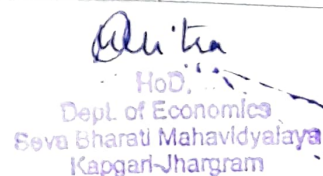 HoD,
Dept. of Economics
Seva Bharati Mahavidyalaya
Kapgari-Jhargram